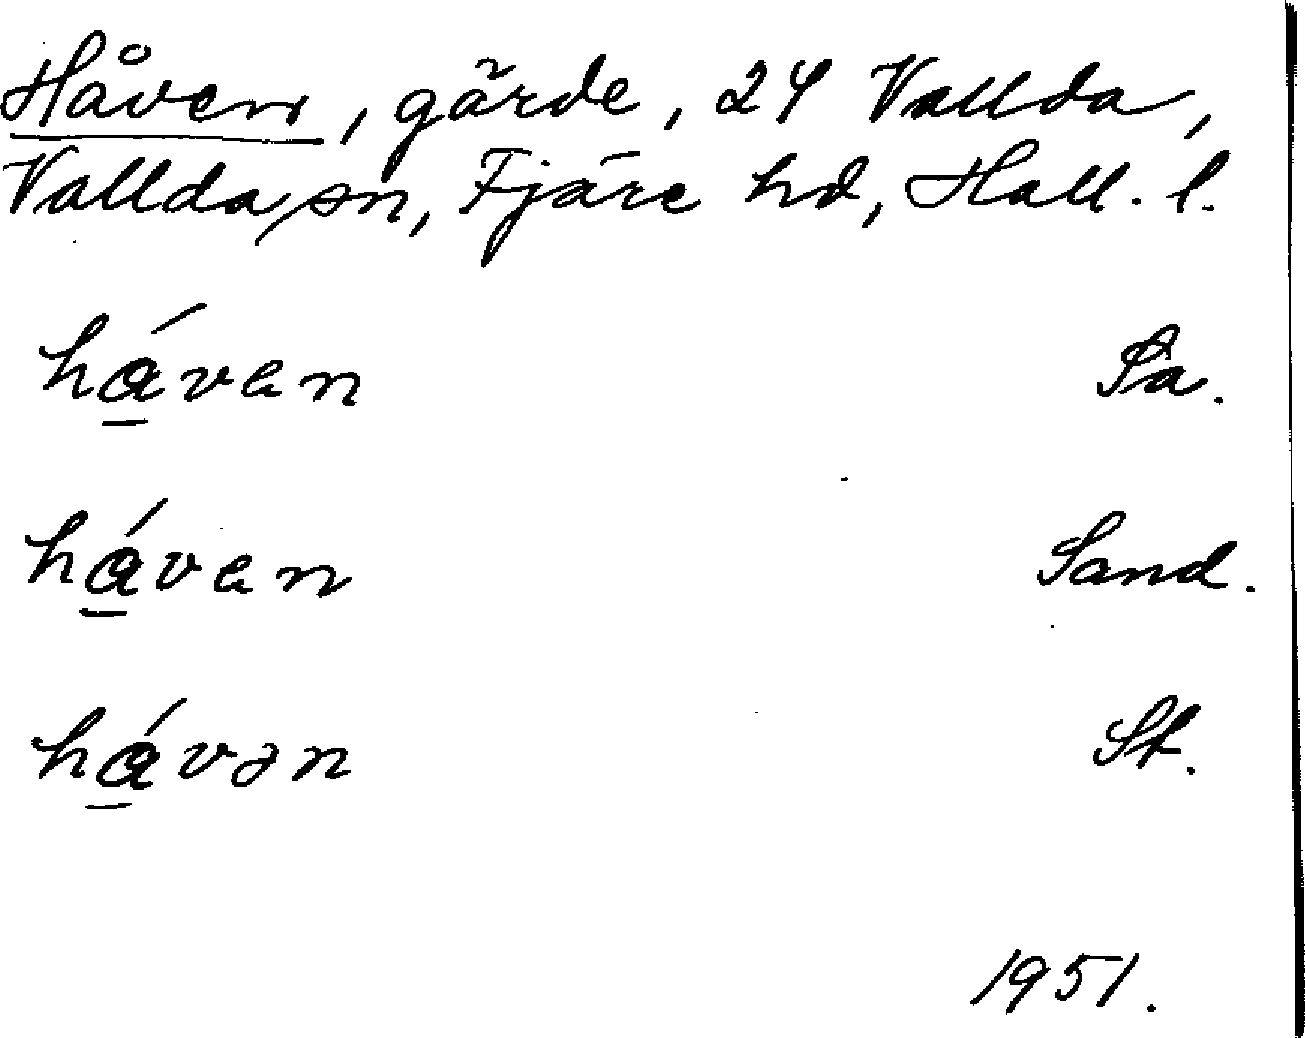 Håven, gärde, 24 Vallda,
Vallda sn, Fjäre hd, Hall. l.
há̱ven Pa.
há̱ven Sand.
há̱vən St.
1951.